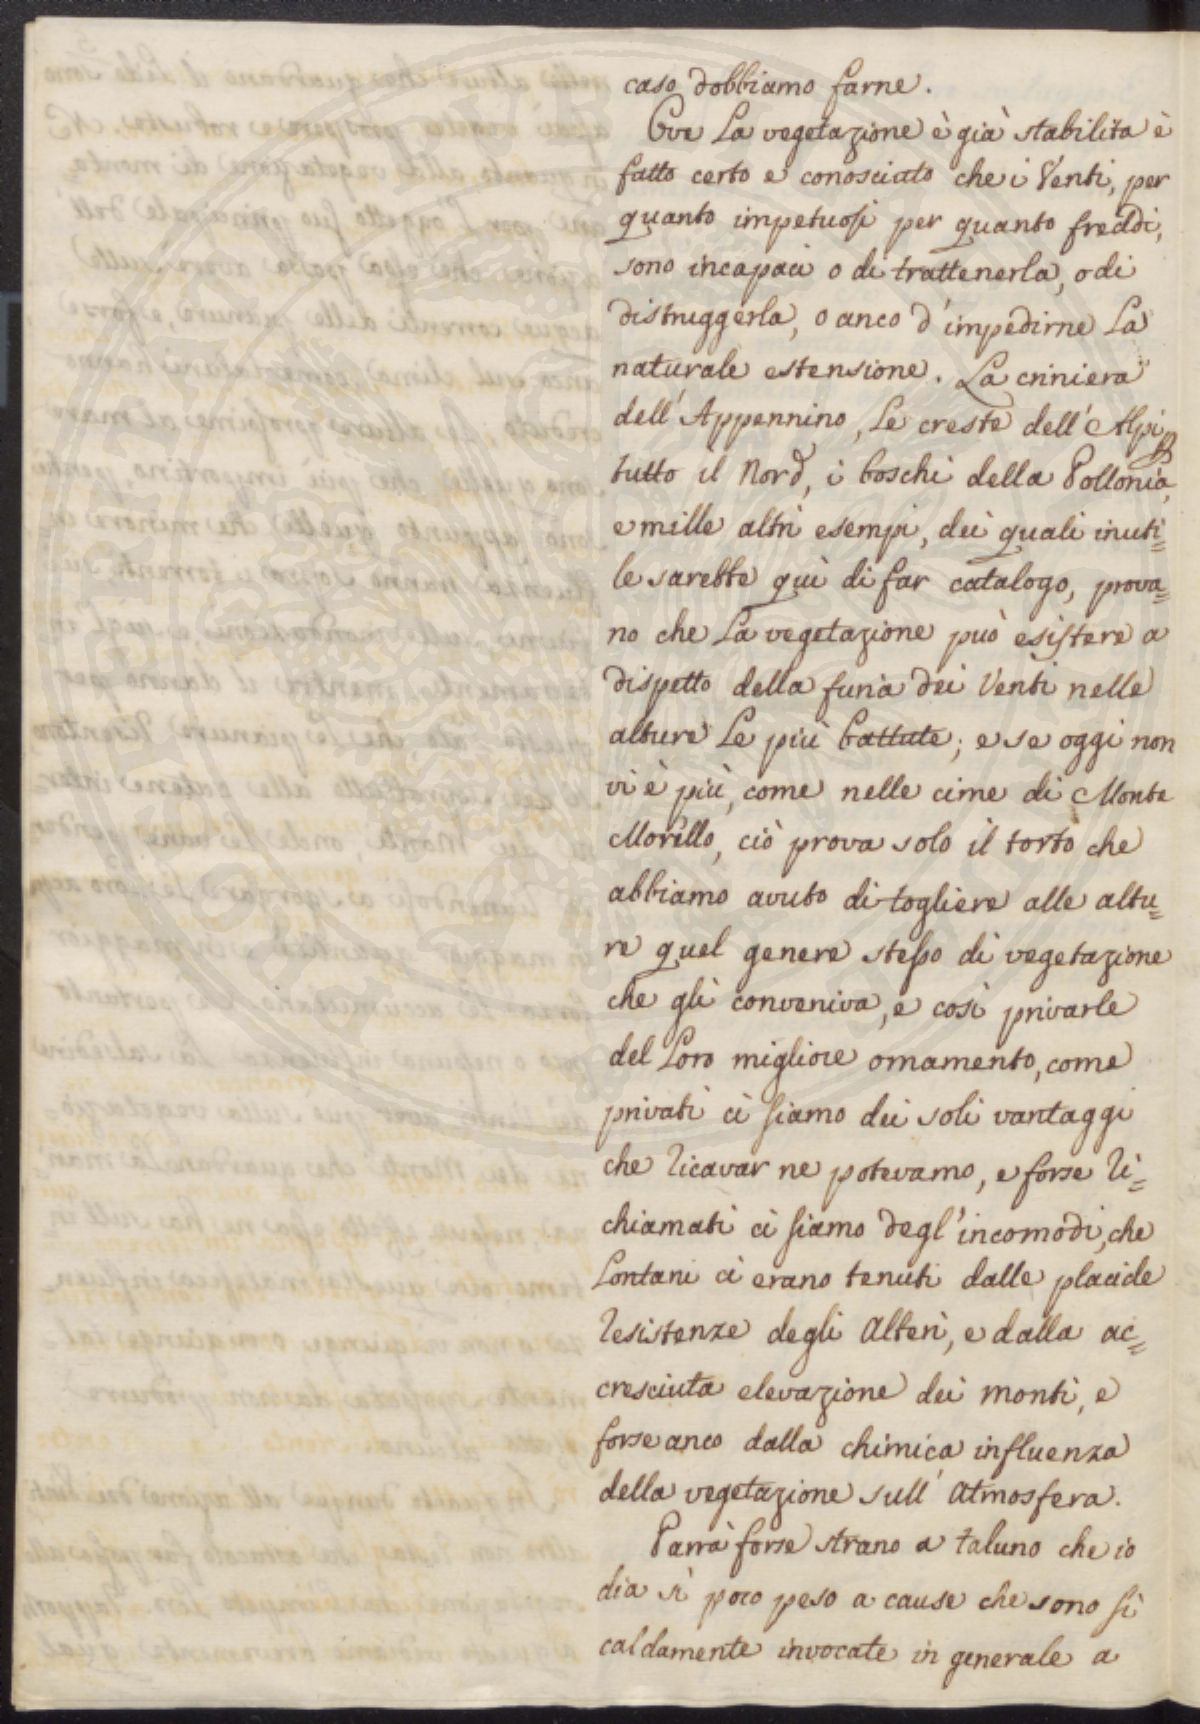 caso dobbiamo farne.
Ove La vegetazione è già stabilita è
fatto certo e conosciuto che i Venti, per
quanto impetuosi per quanto freddi,
sono incapaci o di trattenerla, o di
distruggerla, o anco d'impedirne La
naturale estensione. La criniera
dell'Appennino, Le creste dell'Alpi,
tutto il Nord, i boschi della Pollonia,
e mille altri esempi, dei quali inuti=
le sarebbe quì di far catalogo, prova=
no che La vegetazione può esistere a
dispetto della furia dei Venti nelle
alture Le più battute; e se oggi non
vi è più, come nelle cime di Monte
Morello, ciò prova solo il torto che
abbiamo avuto di togliere alle altu=
re quel genere stesso di vegetazione
che gli conveniva, e così privarle
del Loro migliore ornamento, come
privati ci siamo dei soli vantaggi
che ricavar ne potevamo, e forse ri=
chiamati ci siamo degl'incomodi, che
Lontani ci erano tenuti dalle placide
resistenze degli Alberi, e dalla ac=
cresciuta elevazione dei monti, e
forse anco dalla chimica influenza
della vegetazione sull'Atmosfera.
Parrà forse strano a taluno che io
dia sì poco peso a cause che sono sì
caldamente invocate in generale a